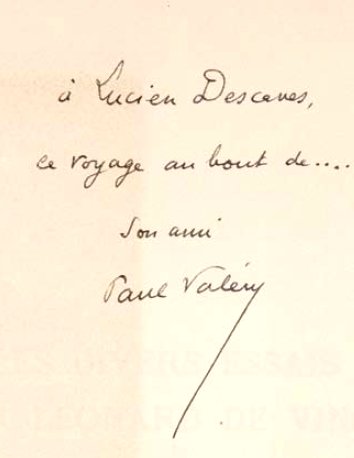 à Lucien Descaves,
ce voyage au bout de....
son ami
Paul Valéry
LES DIVERS ESSAIS
LEONARD DE VIN